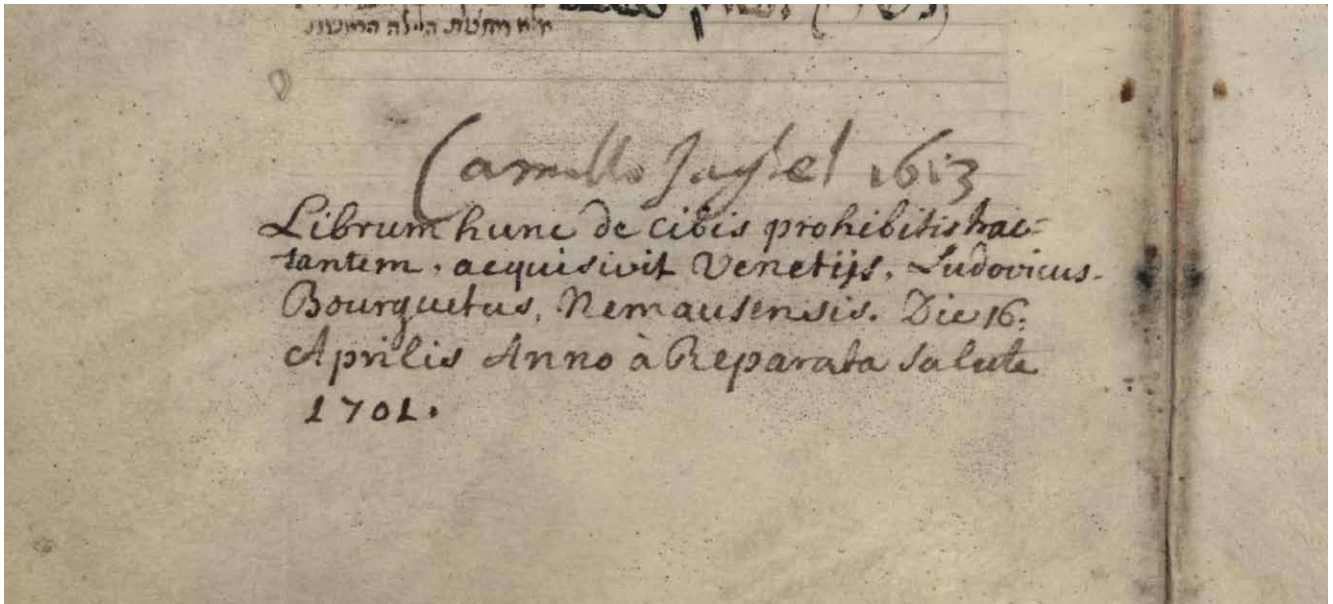 Camillo Jaghel 1613
Librum hunc de cibis prohibitis trac-
tantem, acquisivit Venetijs. Ludovicus.
Bourguetus, Nemausensis. Die 16:
Aprilis Anno à Reparata Salute
1701.